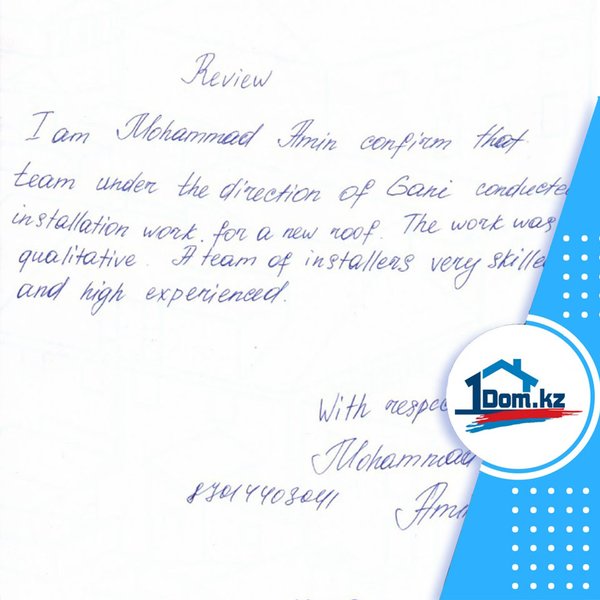 Review
I am Mohammad Amin confirm that
team under the direction of Gani conducte
installation work for a new roof. The work was
qualitative. A team of installers very skille
and high experienced.
With respec
Mohammad
87014403041
Ami
1Dom.kz